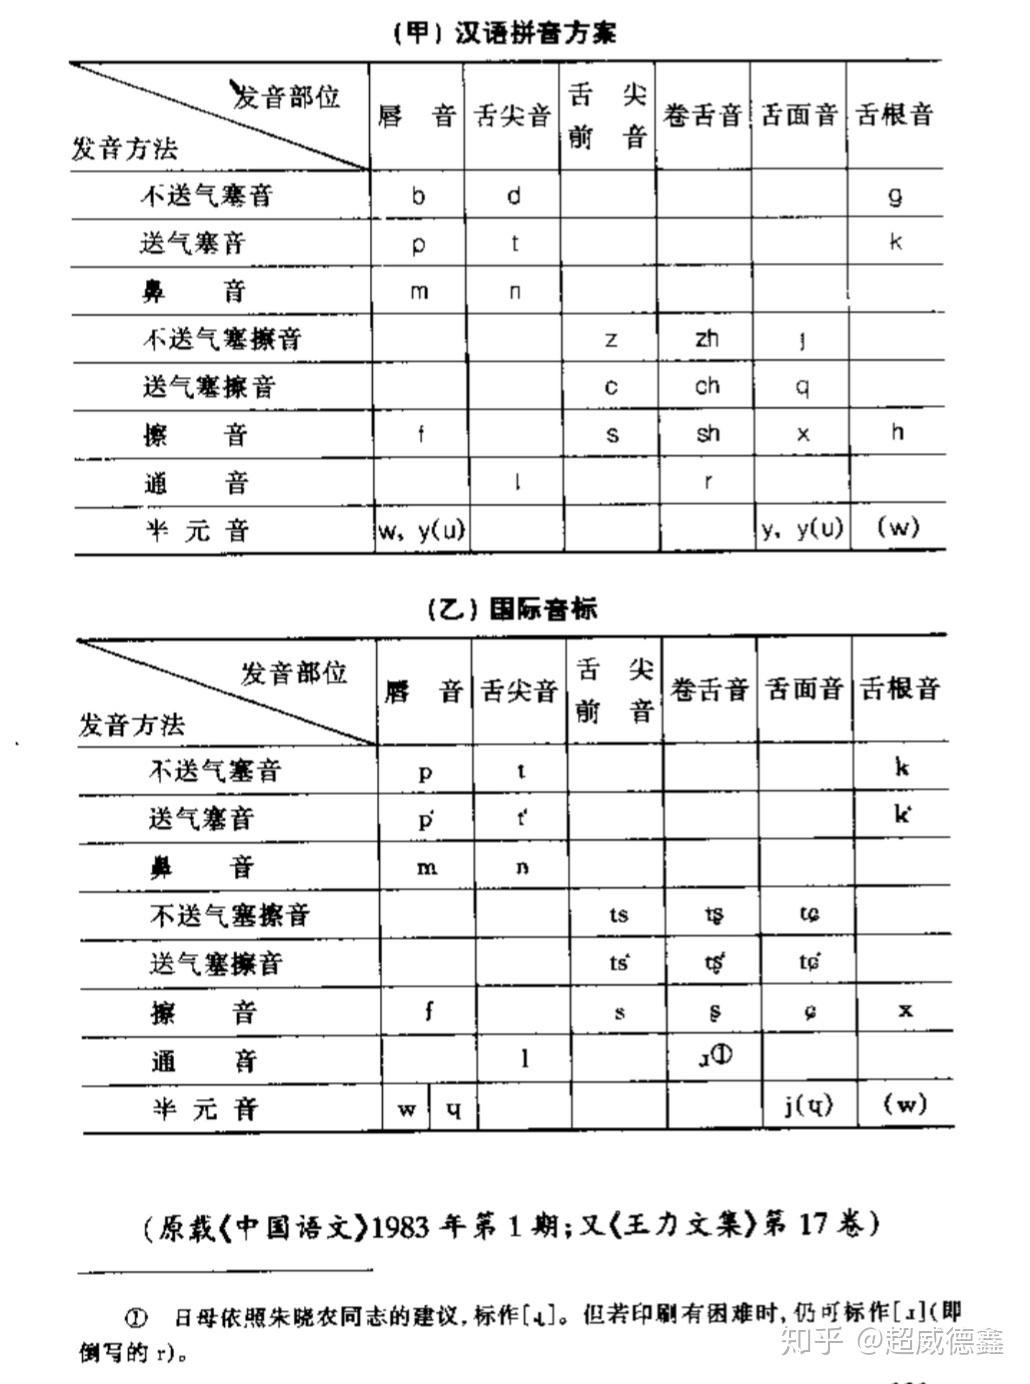 (甲) 汉语拼音方案
发音部位
发音方法
唇 音 舌尖音 舌尖前音 卷舌音 舌面音 舌根音
不送气塞音 b d g
送气塞音 p t k
鼻 音 m n
不送气塞擦音 z zh j
送气塞擦音 c ch q
擦 音 f s sh x h
通 音 l r
半 元 音 w, y(u) y, y(u) (w)
(乙) 国际音标
发音部位
发音方法
唇 音 舌尖音 舌尖前音 卷舌音 舌面音 舌根音
不送气塞音 p t k
送气塞音 p‘ t‘ k‘
鼻 音 m n
不送气塞擦音 ts tʂ tɕ
送气塞擦音 ts‘ tʂ‘ tɕ‘
擦 音 f s ʂ ɕ x
通 音 l ɹ①
半 元 音 w ɥ j(ɥ) (w)
(原载《中国语文》1983 年第 1 期;又《王力文集》第 17 卷)
① 日母依照朱晓农同志的建议,标作[ɻ]。但若印刷有困难时,仍可标作[ɹ](即
倒写的 r)。
知乎 @超威德鑫